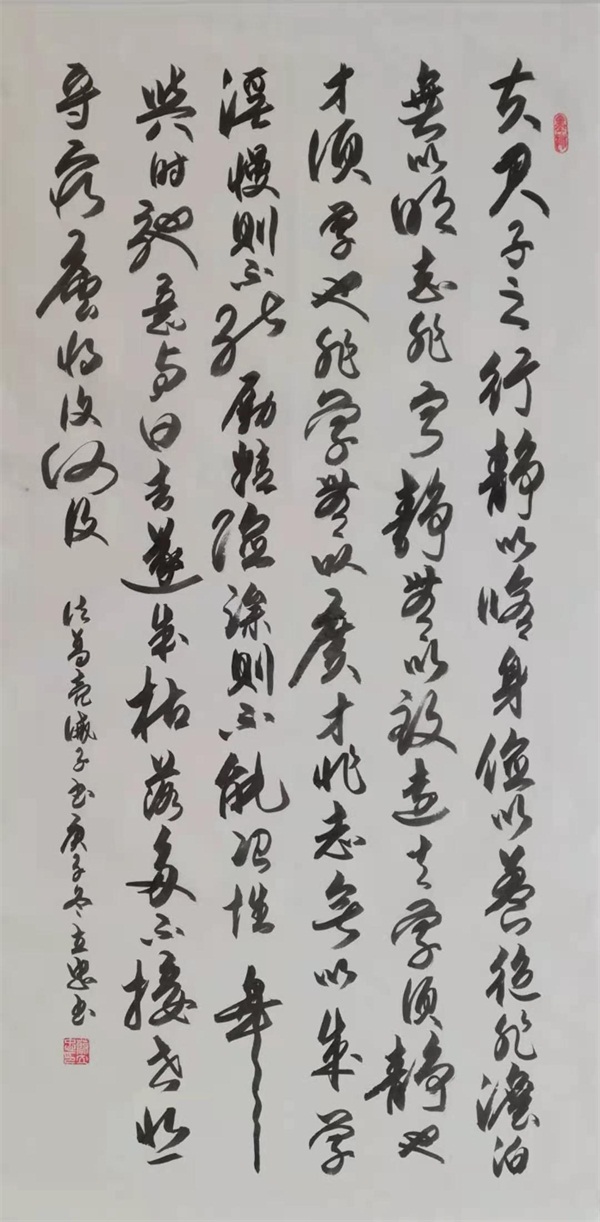 夫君子之行静以修身俭以养德非澹泊
無以明志非宁静無以致远夫学须静也
才须学也非学無以广才非志無以成学
淫慢则不能励精险躁则不能冶性年
與时驰意与日去遂成枯落多不接世悲
守穷庐将复何及
诸葛亮诫子书庚子冬立忠书